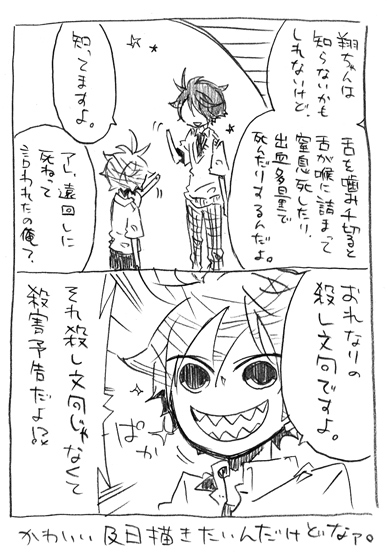 翔ちゃんは
知らないかも
しれないけど、
舌を噛み千切ると
舌が喉に詰まって
窒息死したり、
出血多量で
死んだりするんだよ。
知ってますよ。
アレ、遠回しに
死ねって
言われたの俺？
おれなりの
殺し文句ですよ。
ぱかっ
それ殺し文句じゃなくて
殺害予告だよ!?
かわいい及日描きたいんだけどなァ。